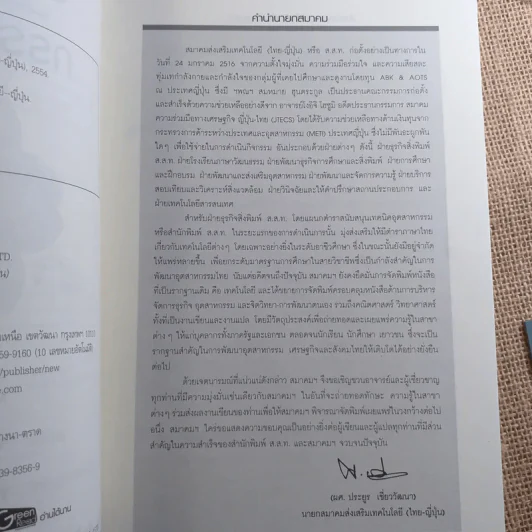 คำนำนายกสมาคม
สมาคมส่งเสริมเทคโนโลยี (ไทย-ญี่ปุ่น) หรือ ส.ส.ท. ก่อตั้งอย่างเป็นทางการใน
วันที่ 24 มกราคม 2516 จากความตั้งใจมุ่งมั่น ความร่วมมือร่วมใจ และความเสียสละ
ทุ่มเทกำลังกายและกำลังใจของกลุ่มผู้ที่เคยไปศึกษาและดูงานโดยทุน ABK & AOTS
ณ ประเทศญี่ปุ่น ซึ่งมี ฯพณฯ สมหมาย ฮุนตระกูล เป็นประธานคณะกรรมการก่อตั้ง
และสำเร็จด้วยความช่วยเหลืออย่างดีจาก อาจารย์โงอิจิ โฮซูมิ อดีตประธานกรรมการ สมาคม
ความร่วมมือทางเศรษฐกิจ ญี่ปุ่น-ไทย (JTECS) โดยได้รับความช่วยเหลือทางด้านเงินทุนจาก
กระทรวงการค้าระหว่างประเทศและอุตสาหกรรม (METI) ประเทศญี่ปุ่น ซึ่งไม่มีพันธะผูกพัน
ใดๆ เพื่อใช้จ่ายในการดำเนินกิจกรรม อันประกอบด้วยฝ่ายต่างๆ ดังนี้ ฝ่ายธุรกิจสิ่งพิมพ์
ส.ส.ท. ฝ่ายโรงเรียนภาษาวัฒนธรรม ฝ่ายพัฒนาธุรกิจการศึกษาและสิ่งพิมพ์ ฝ่ายการศึกษา
และฝึกอบรม ฝ่ายพัฒนาและส่งเสริมอุตสาหกรรม ฝ่ายพัฒนาและจัดการความรู้ ฝ่ายบริการ
สอบเทียบและวิเคราะห์สิ่งแวดล้อม ฝ่ายวินิจฉัยและให้คำปรึกษาสถานประกอบการ และ
ฝ่ายเทคโนโลยีสารสนเทศ
สำหรับฝ่ายธุรกิจสิ่งพิมพ์ ส.ส.ท. โดยแผนกตำราสนับสนุนเทคนิคอุตสาหกรรม
หรือสำนักพิมพ์ ส.ส.ท. ในระยะแรกของการดำเนินการนั้น มุ่งส่งเสริมให้มีตำราภาษาไทย
เกี่ยวกับเทคโนโลยีต่างๆ โดยเฉพาะอย่างยิ่งในระดับอาชีวศึกษา ซึ่งในขณะนั้นยังมีอยู่จำกัด
ให้แพร่หลายขึ้น เพื่อยกระดับมาตรฐานการศึกษาในสายวิชาชีพซึ่งเป็นกำลังสำคัญในการ
พัฒนาอุตสาหกรรมไทย นับแต่อดีตจนถึงปัจจุบัน สมาคมฯ ยังคงยึดมั่นการจัดพิมพ์หนังสือ
ที่เป็นรากฐานเดิม คือ เทคโนโลยี และได้ขยายการจัดพิมพ์ครอบคลุมหนังสือด้านการบริหาร
จัดการธุรกิจ อุตสาหกรรม และจิตวิทยา-การพัฒนาตนเอง รวมถึงคณิตศาสตร์ วิทยาศาสตร์
ทั้งที่เป็นงานเขียนและงานแปล โดยมีวัตถุประสงค์เพื่อถ่ายทอดและเผยแพร่ความรู้ในสาขา
ต่างๆ ให้แก่บุคลากรทั้งภาครัฐและเอกชน ตลอดจนนักเรียน นักศึกษา เยาวชน ซึ่งจะเป็น
รากฐานสำคัญในการพัฒนาอุตสาหกรรม เศรษฐกิจและสังคมไทยให้เติบโตได้อย่างยั่งยืน
ต่อไป
ด้วยเจตนารมณ์ที่แน่วแน่ดังกล่าว สมาคมฯ จึงขอเชิญชวนอาจารย์และผู้เชี่ยวชาญ
ทุกท่านที่มีความมุ่งมั่นเช่นเดียวกับสมาคมฯ ในอันที่จะถ่ายทอดทักษะ ความรู้ในสาขา
ต่างๆ ร่วมส่งผลงานเขียนของท่านเพื่อให้สมาคมฯ พิจารณาจัดพิมพ์เผยแพร่ในวงกว้างต่อไป
อนึ่ง สมาคมฯ ใคร่ขอแสดงความขอบคุณเป็นอย่างยิ่งต่อผู้เขียนและผู้แปลทุกท่านที่มีส่วน
สำคัญในความสำเร็จของสำนักพิมพ์ ส.ส.ท. และสมาคมฯ จวบจนปัจจุบัน
(ผศ. ประยูร เชี่ยววัฒนา)
นายกสมาคมส่งเสริมเทคโนโลยี (ไทย-ญี่ปุ่น)
-ญี่ปุ่น), 2554
-ญี่ปุ่น
TD.
เหนือ เขตวัฒนา กรุงเทพฯ 10110
59-9160 (10 เลขหมายอัตโนมัติ)
/publisher/new
.com
างนา-ตราด
39-8356-9
Green
อ่านได้นาน